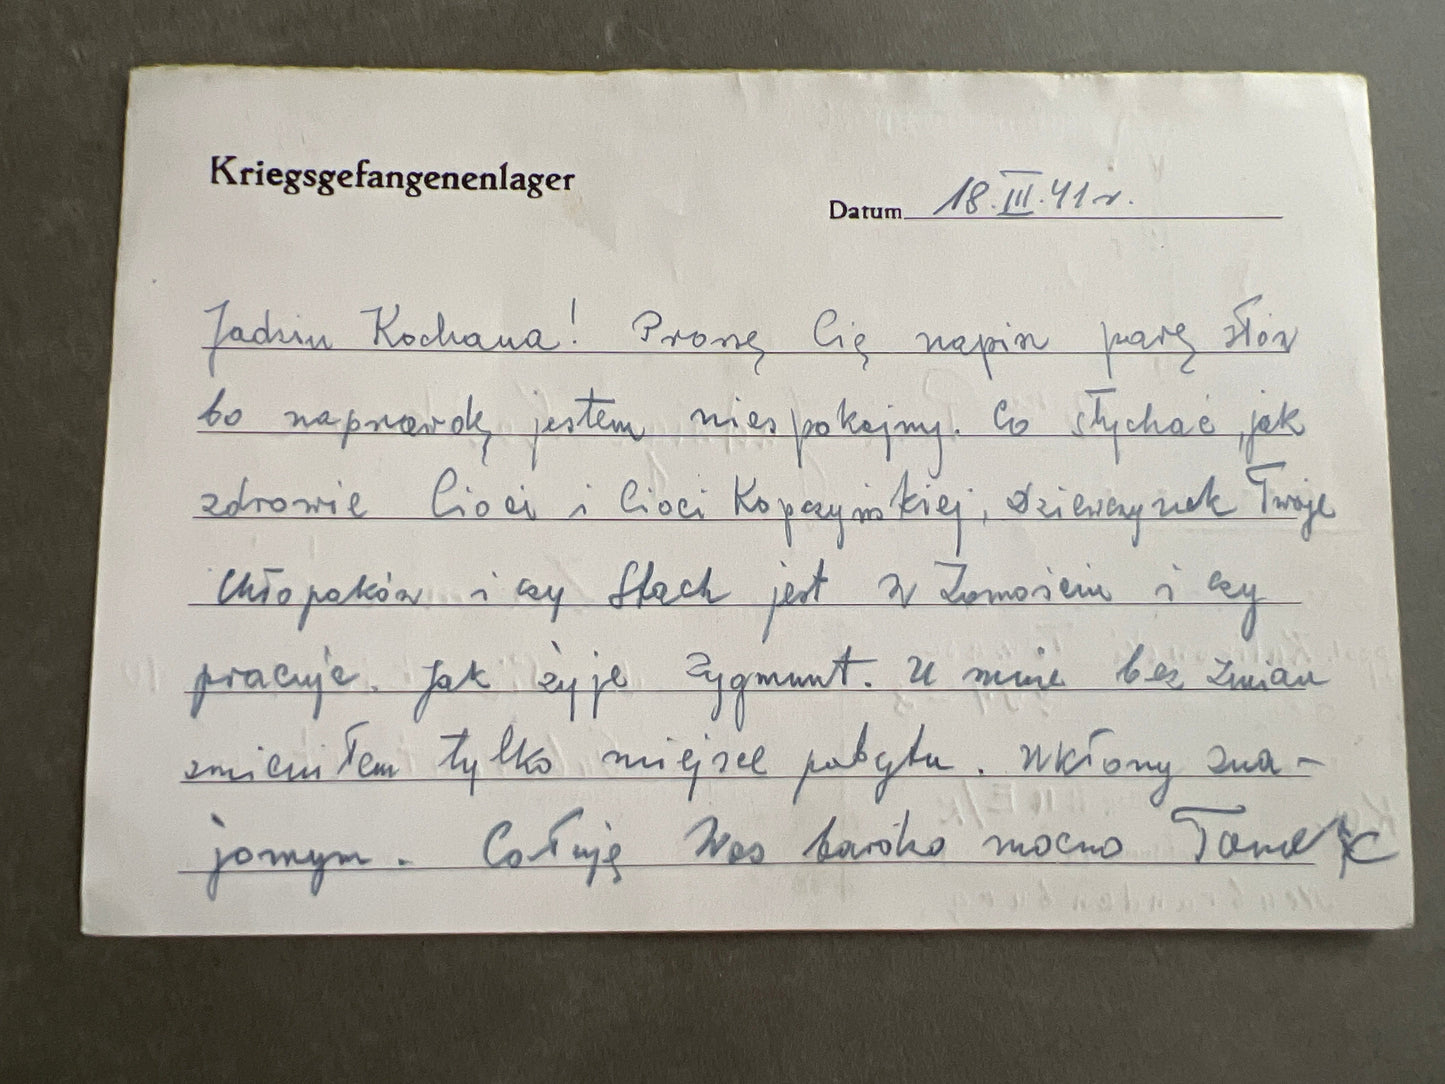 Kriegsgefangenenlager
Datum 18.III.41r.
Jadziu Kochana! Proszę Cię napisz parę słów
bo naprawdę jestem niespokojny. Co słychać, jak
zdrowie Cioci i Cioci Kopczyńskiej, Dziewczynek Twoje
Chłopaków i czy Stach jest w Zamościu i czy
pracuje. Jak żyje Zygmunt. U mnie bez zmian
zmieniłem tylko miejsce pobytu. Ukłony zna-
jomym. Całuję Was bardzo mocno